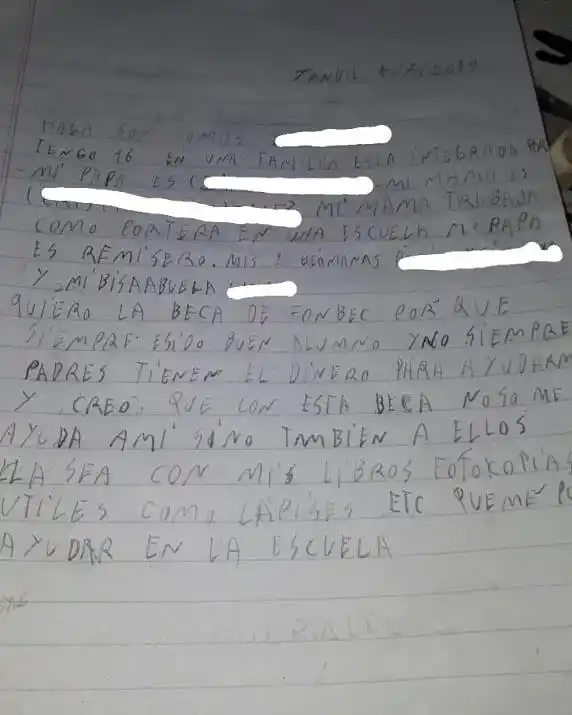 TANDIL 2019
HOLA SOY
TENGO 16 EN UNA FAMILIA ESTA INTEGRADA POR
MI PAPA ES MI MAMA ES
MI MAMA TRABAJA
COMO PORTERA EN UNA ESCUELA MI PAPA
ES REMISERO. MIS HERMANAS
Y MI BISAABUELA
QUIERO LA BECA DE FONBEC POR QUE
SIEMPRE ESIDO BUEN ALUMNO YNO SIEMPRE
PADRES TIENEN EL DINERO PARA AYUDARM
Y CREO, QUE CON ESTA BECA NOSO ME
AYUDA AMI SINO TAMBIEN A ELLOS
LLA SEA CON MIS LIBROS FOTOKOPIAS
UTILES COMO LAPISES ETC QUEME PU
AYUDAR EN LA ESCUELA